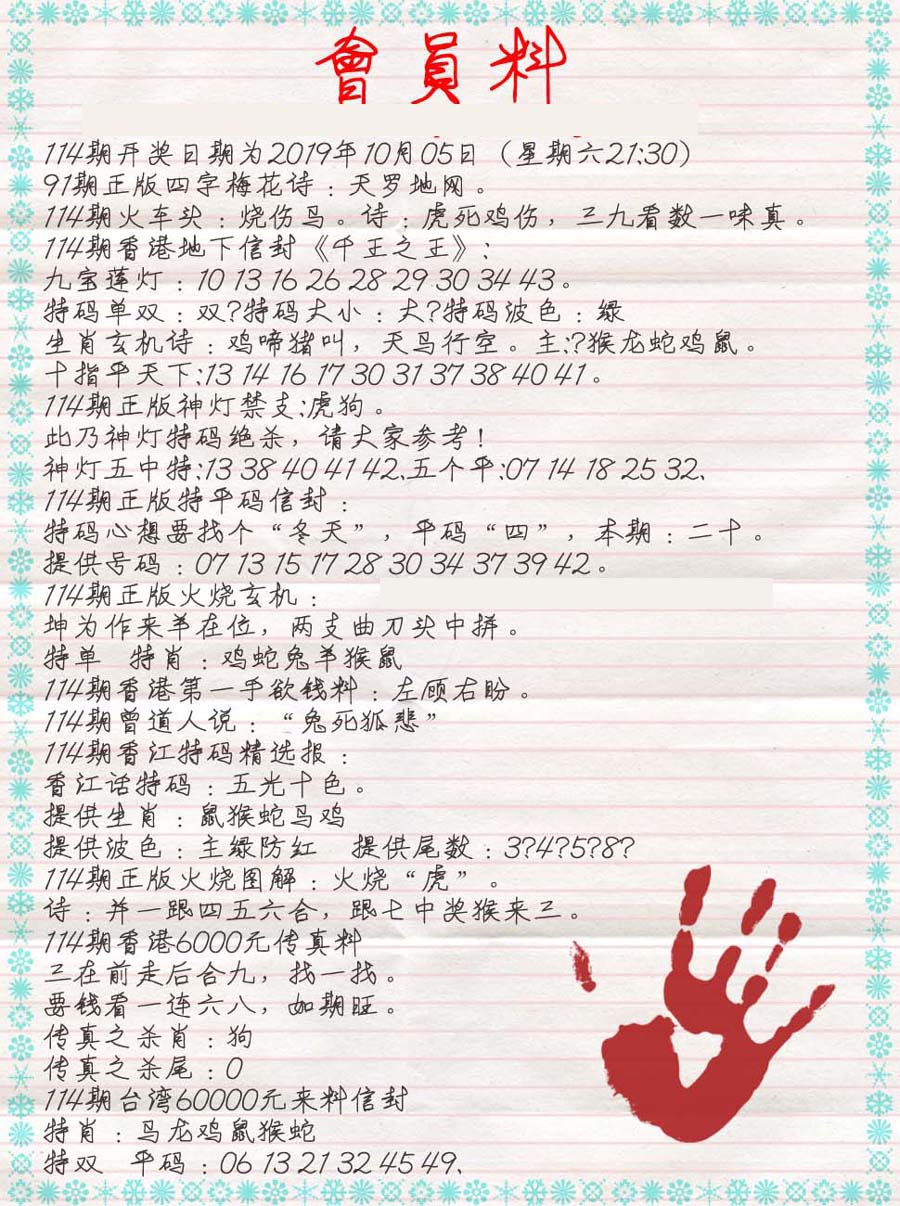 會員料
114期开奖日期为2019年10月05日（星期六21:30）
91期正版四字梅花诗：天罗地网。
114期火车头：烧伤鸟。诗：虎死鸡伤，三九看数一味真。
114期香港地下信封《千王之王》：
九宝莲灯：10 13 16 26 28 29 30 34 43。
特码单双：双?特码大小：大?特码波色：绿
生肖玄机诗：鸡啼猪叫，天鸟行空。主:?猴龙蛇鸡鼠。
十指平天下:13 14 16 17 30 31 37 38 40 41。
114期正版神灯禁支:虎狗。
此乃神灯特码绝杀，请大家参考！
神灯五中特:13 38 40 41 42、五个平:07 14 18 25 32、
114期正版特平码信封：
特码心想要找个“冬天”，平码“四”，本期：二十。
提供号码：07 13 15 17 28 30 34 37 39 42。
114期正版火烧玄机：
坤为作来羊在位，两支曲刀头中拼。
特单 特肖：鸡蛇兔羊猴鼠
114期香港第一手欲钱料：左顾右盼。
114期曾道人说：“兔死狐悲”
114期香江特码精选报：
香江话特码：五光十色。
提供生肖：鼠猴蛇马鸡
提供波色：主绿防红 提供尾数：3?4?5?8?
114期正版火烧图解：火烧“虎”。
诗：并一跟四五六合，跟七中奖猴来三。
114期香港6000元传真料
三在前走后合九，找一找。
要钱看一连六八，如期旺。
传真之杀肖：狗
传真之杀尾：0
114期台湾60000元来料信封
特肖：马龙鸡鼠猴蛇
特双 平码：06 13 21 32 45 49、